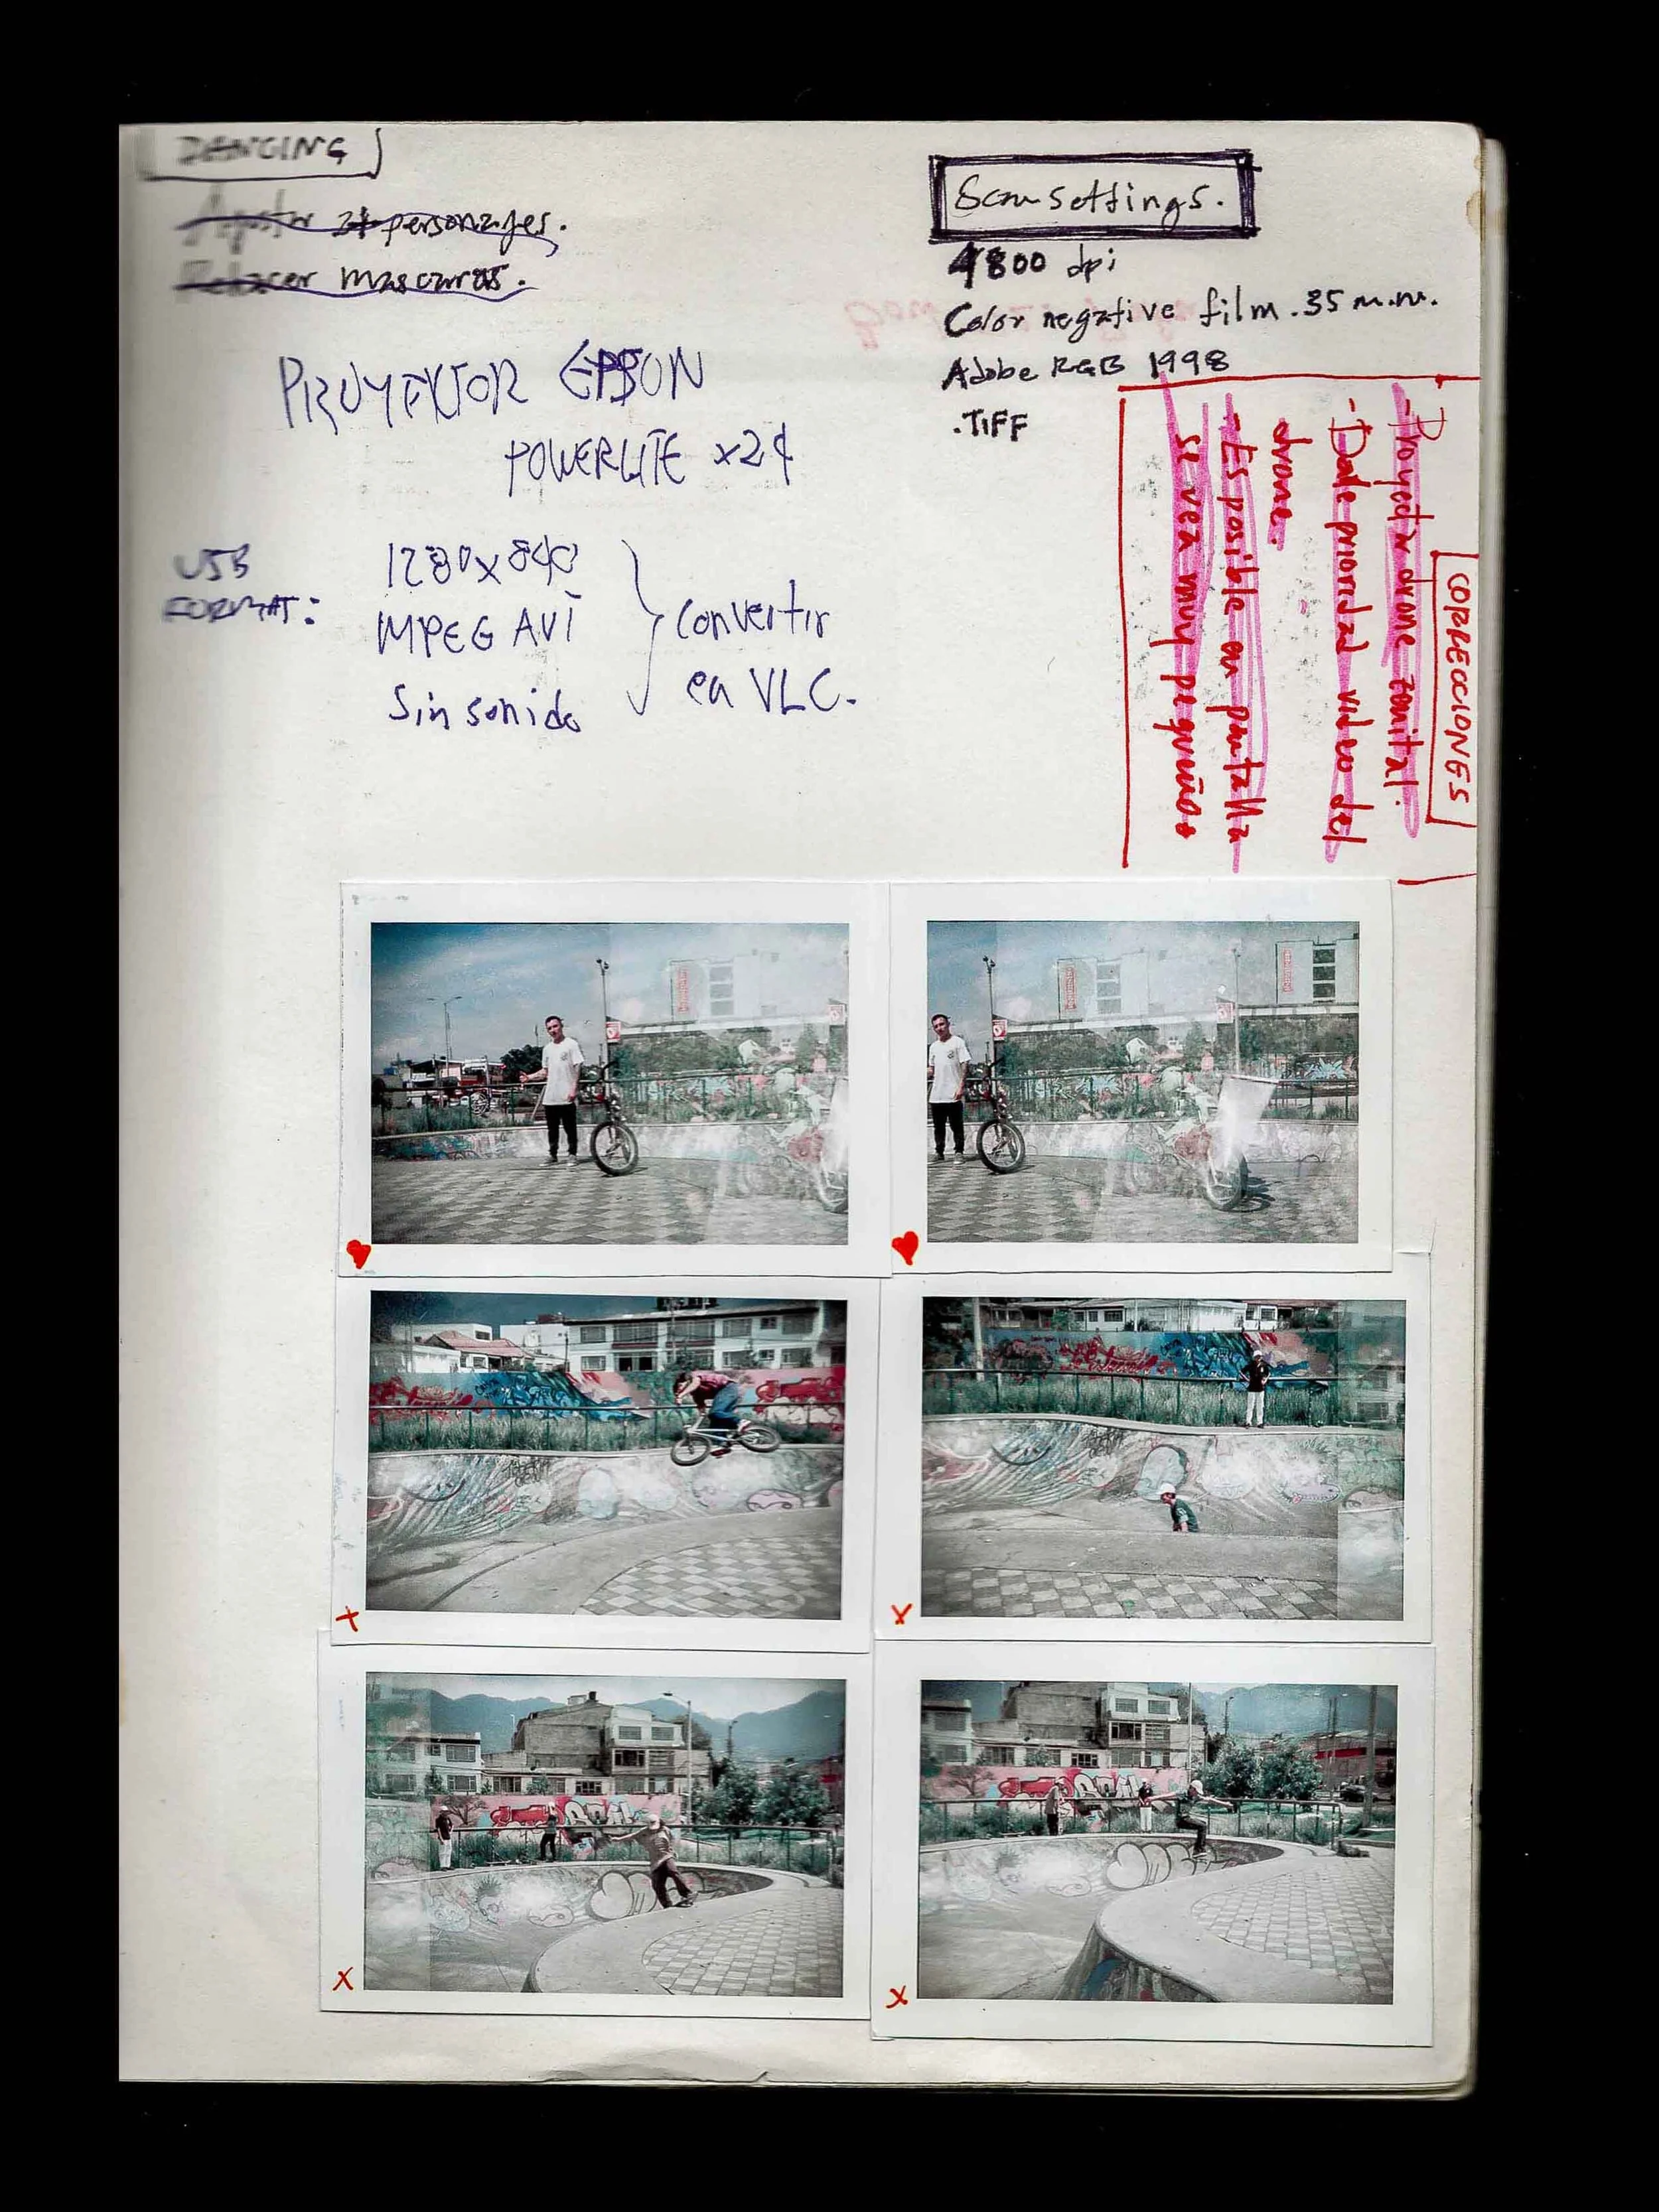 DANCING
Ajustar 2+ personajes.
Rehacer mascaras.
PROYEKTOR EPSON
POWERLITE x24
USB
FORMAT:
1280x840
MPEG AVI
Sin sonido
Convertir
en VLC.
Scan settings.
4800 dpi
Color negative film .35 m.m.
Adobe RGB 1998
.TIFF
CORRECCIONES
- Proyectar drone zenital.
- Darle prioridad video del
drone.
- Es posible en pantalla
se vea muy pequeño